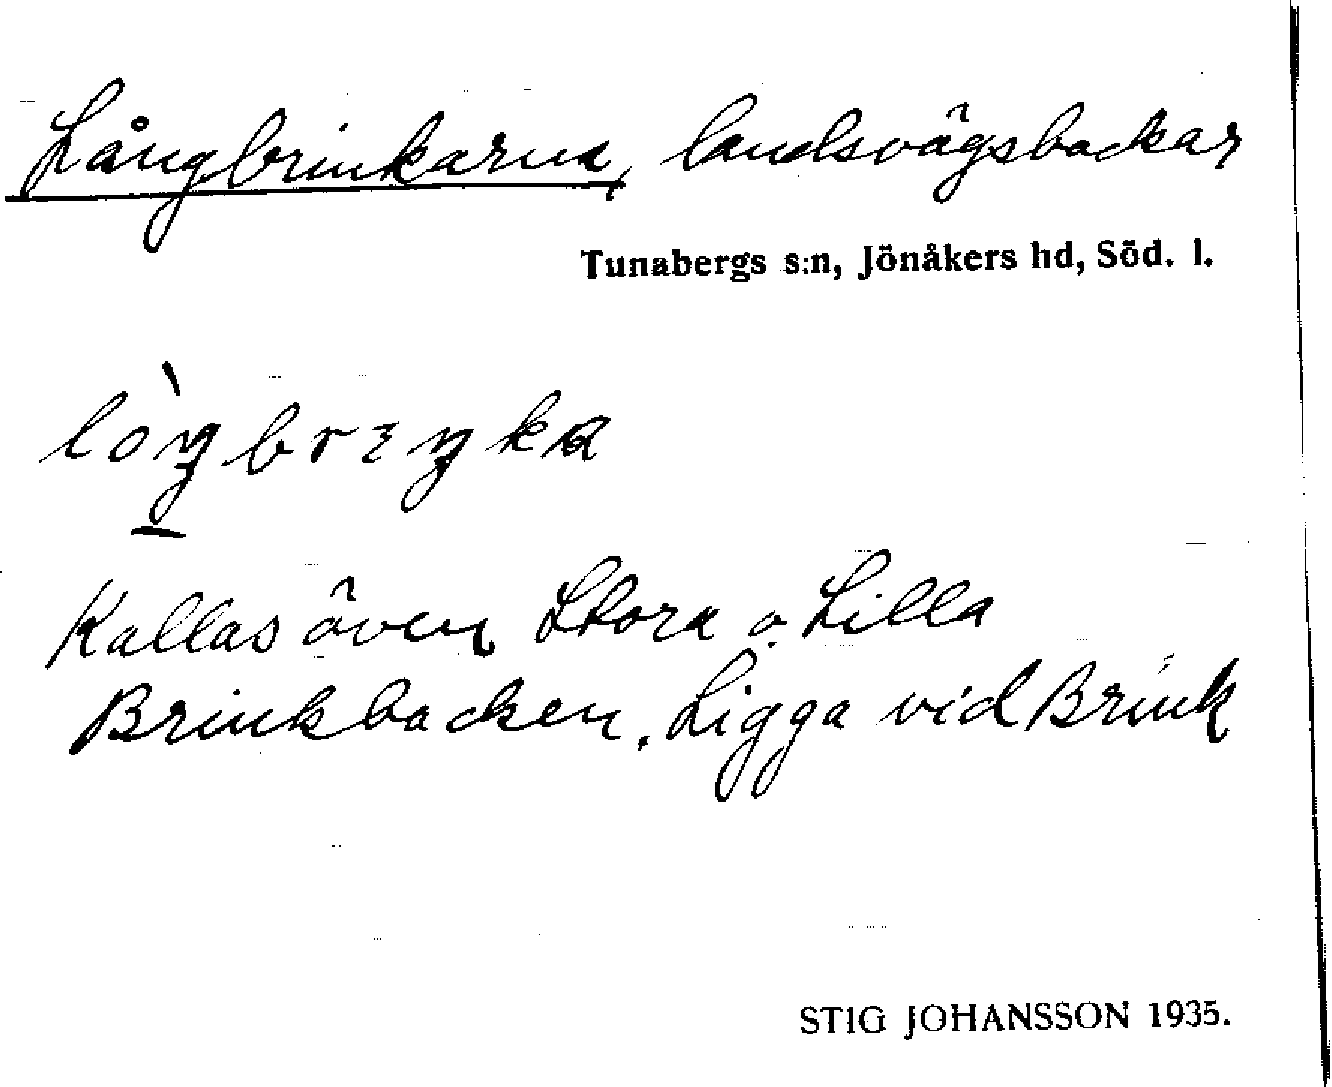 Långbrinkarna, landsvägsbackar
Tunabergs s:n, Jönåkers hd, Söd. l.
lòŋbrɪŋka
Kallas även Stora o. Lilla
Brinkbacken. Ligga vid Brink
STIG JOHANSSON 1935.